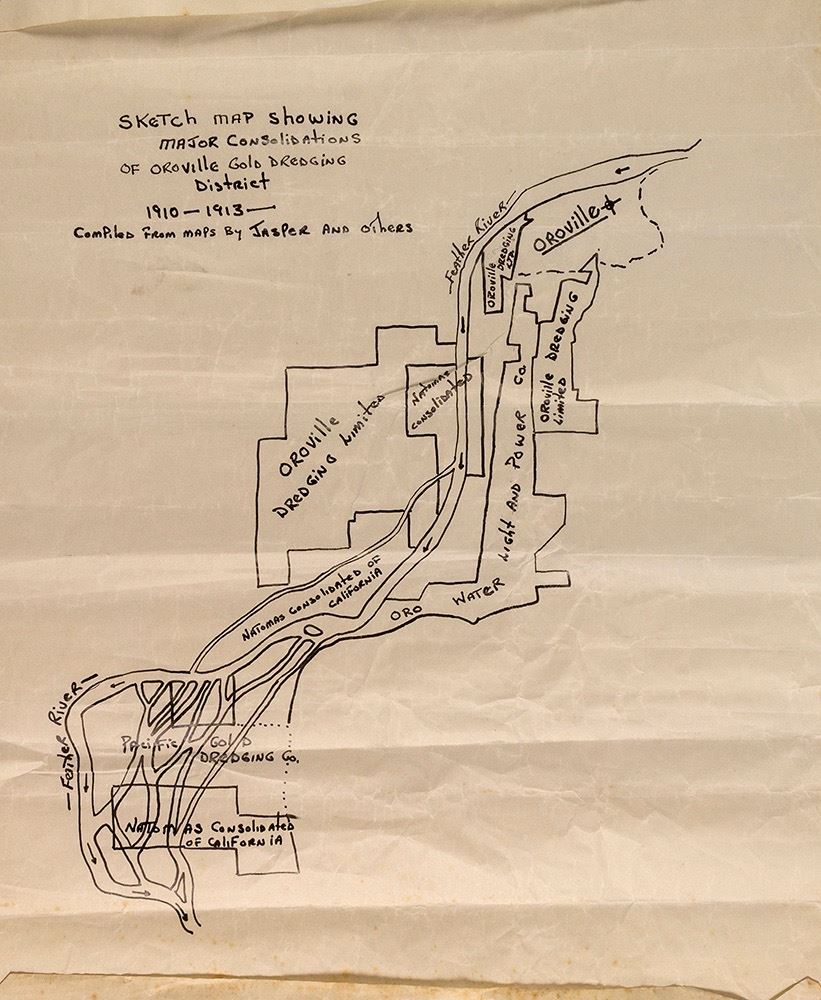 SKETCH MAP SHOWING
MAJOR CONSOLIDATIONS
OF OROVILLE GOLD DREDGING
DISTRICT
1910 — 1913 —
COMPILED FROM MAPS BY JASPER AND OTHERS
— FEATHER RIVER —
OROVILLE
OROVILLE
DREDGING
LTD
OROVILLE DREDGING
LIMITED
NATOMAS
CONSOLIDATED
OROVILLE
DREDGING LIMITED
ORO WATER LIGHT AND POWER CO.
NATOMAS CONSOLIDATED OF
CALIFORNIA
— FEATHER RIVER —
PACIFIC GOLD
DREDGING CO.
NATOMAS CONSOLIDATED
OF CALIFORNIA